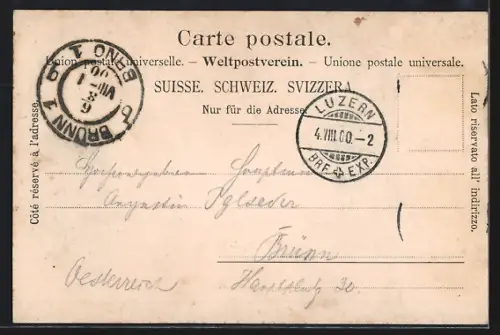 Carte postale.
Union postale universelle. – Weltpostverein. – Unione postale universale.
SUISSE. SCHWEIZ. SVIZZERA
Nur für die Adresse
Côté réservé à l'adresse.
Lato riservato all' indirizzo.
BRÜNN 1 BRNO 1
LUZERN
4.VIII.00.–2
BRF. EXP.
Hochwohlgeboren Hauptmann
Augustin
Brünn
Oesterreich
30.